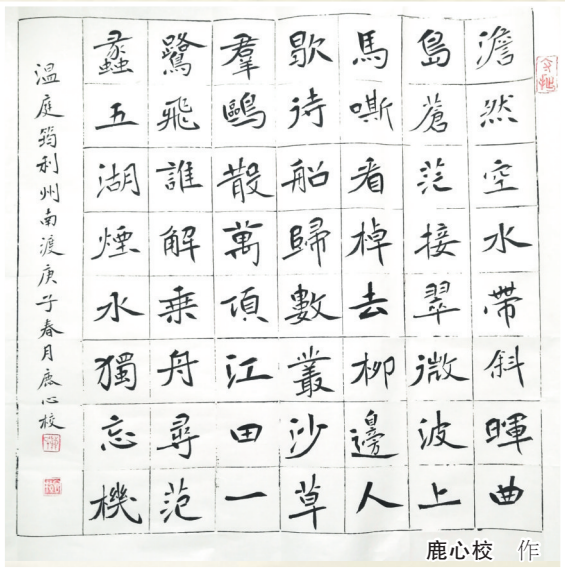 澹然空水帶斜暉曲
島蒼茫接翠微波上
馬嘶看棹去柳邊人
歇待船歸數叢沙草
羣鷗散萬頃江田一
鷺飛誰解乗舟尋范
蠡五湖煙水獨忘機
温庭筠利州南渡庚子春月鹿心校
鹿心校 作